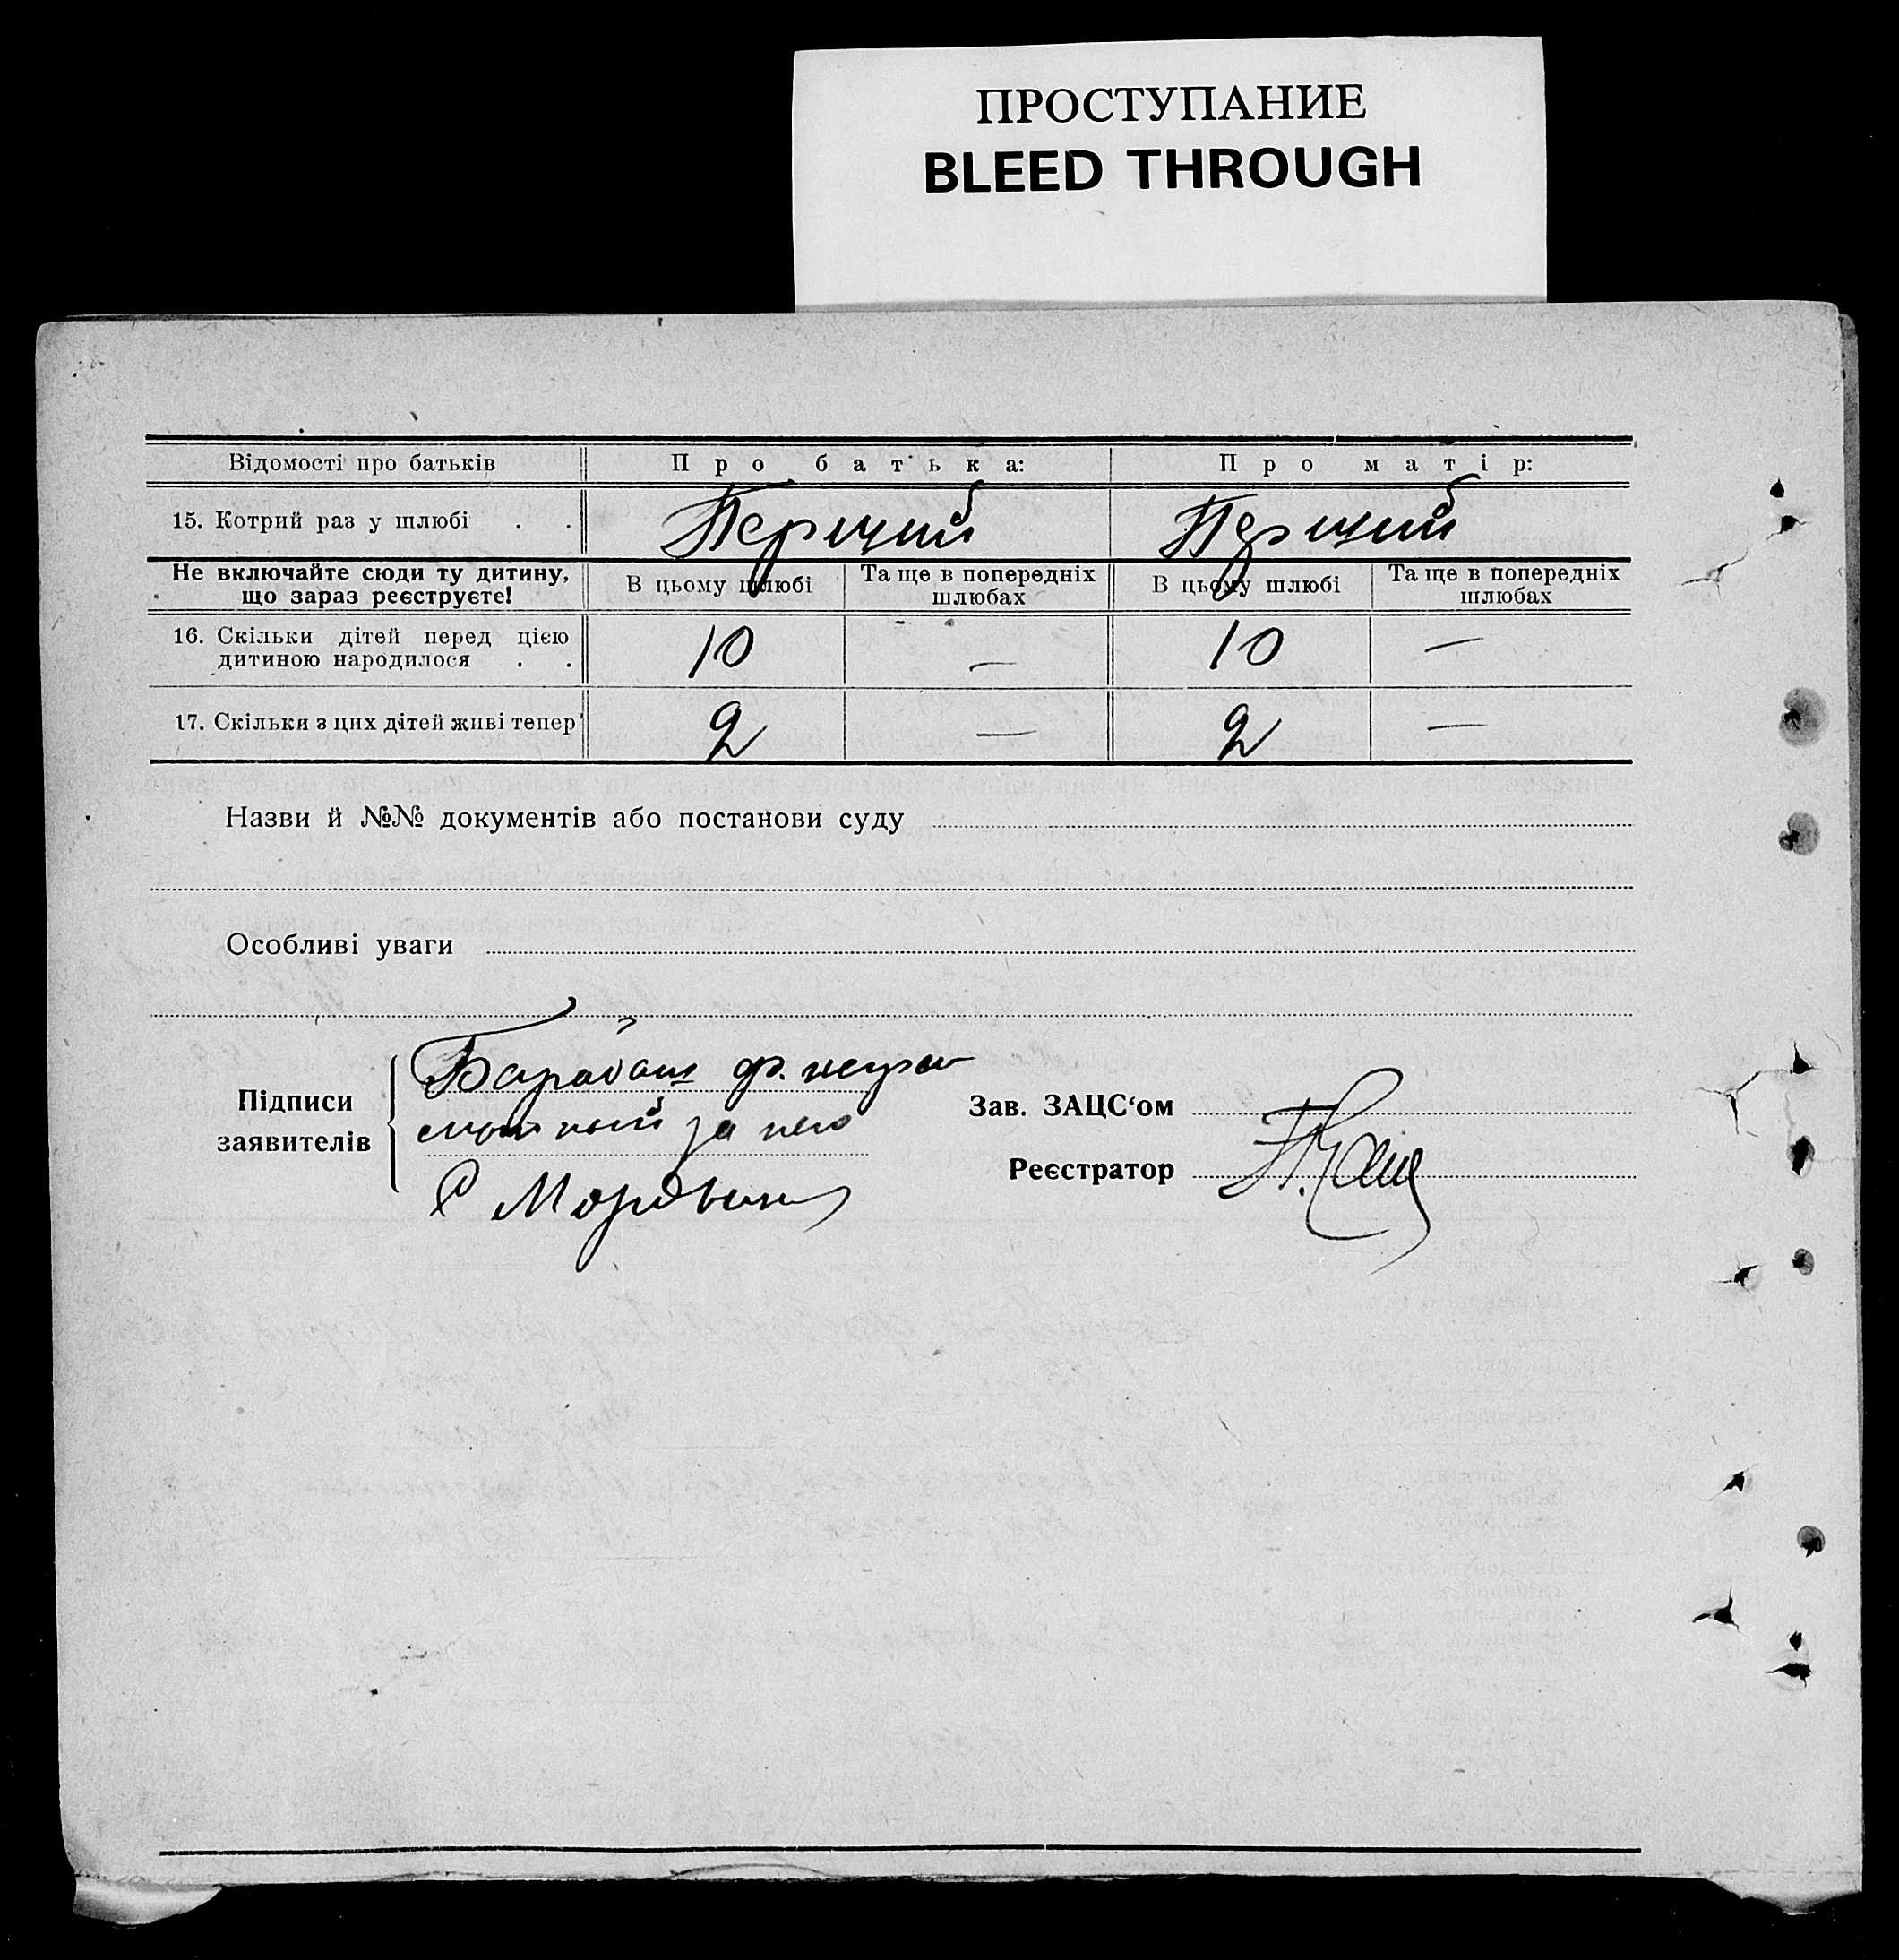 ПРОСТУПАНИЕ
BLEED THROUGH
Відомості про батьків Про батька: Про матір:
15. Котрий раз у шлюбі . . Перший Перший
Не включайте сюди ту дитину, що зараз реєструєте! В цьому шлюбі Та ще в попередніх шлюбах В цьому шлюбі Та ще в попередніх шлюбах
16. Скільки дітей перед цією
дитиною народилося . . 10 — 10 —
17. Скільки з цих дітей живі тепер 2 — 2 —
Назви й №№ документів або постанови суду
Особливі уваги
Підписи
заявителів
Барабаш
за него
Зав. ЗАЦС‘ом
Реєстратор